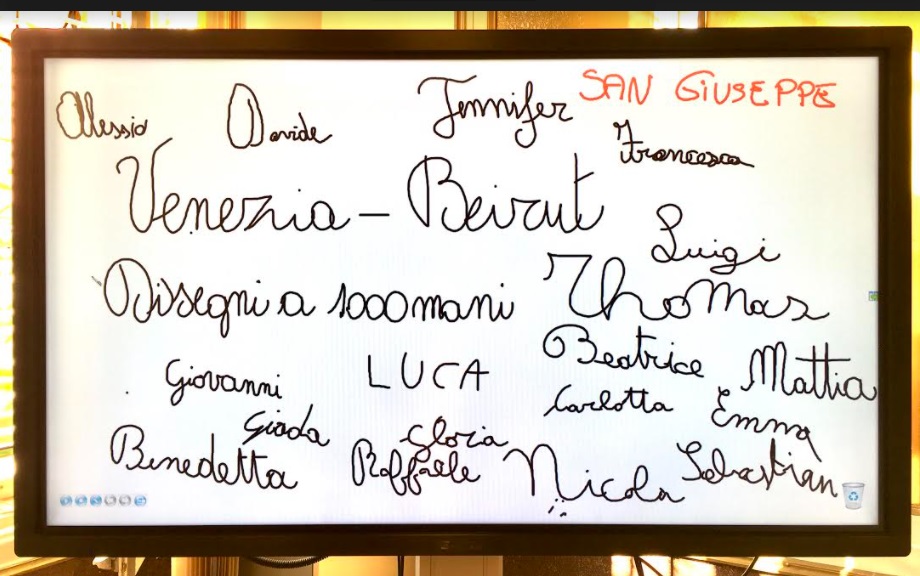 SAN GIUSEPPE
Alessio Davide Jennifer
Francesca
Venezia - Beirut
Luigi
Disegni a 1000 mani Thomas
Beatrice Mattia
Giovanni LUCA
Carlotta Emma
Giada Gloria
Benedetta Raffaele Nicola Sebastian